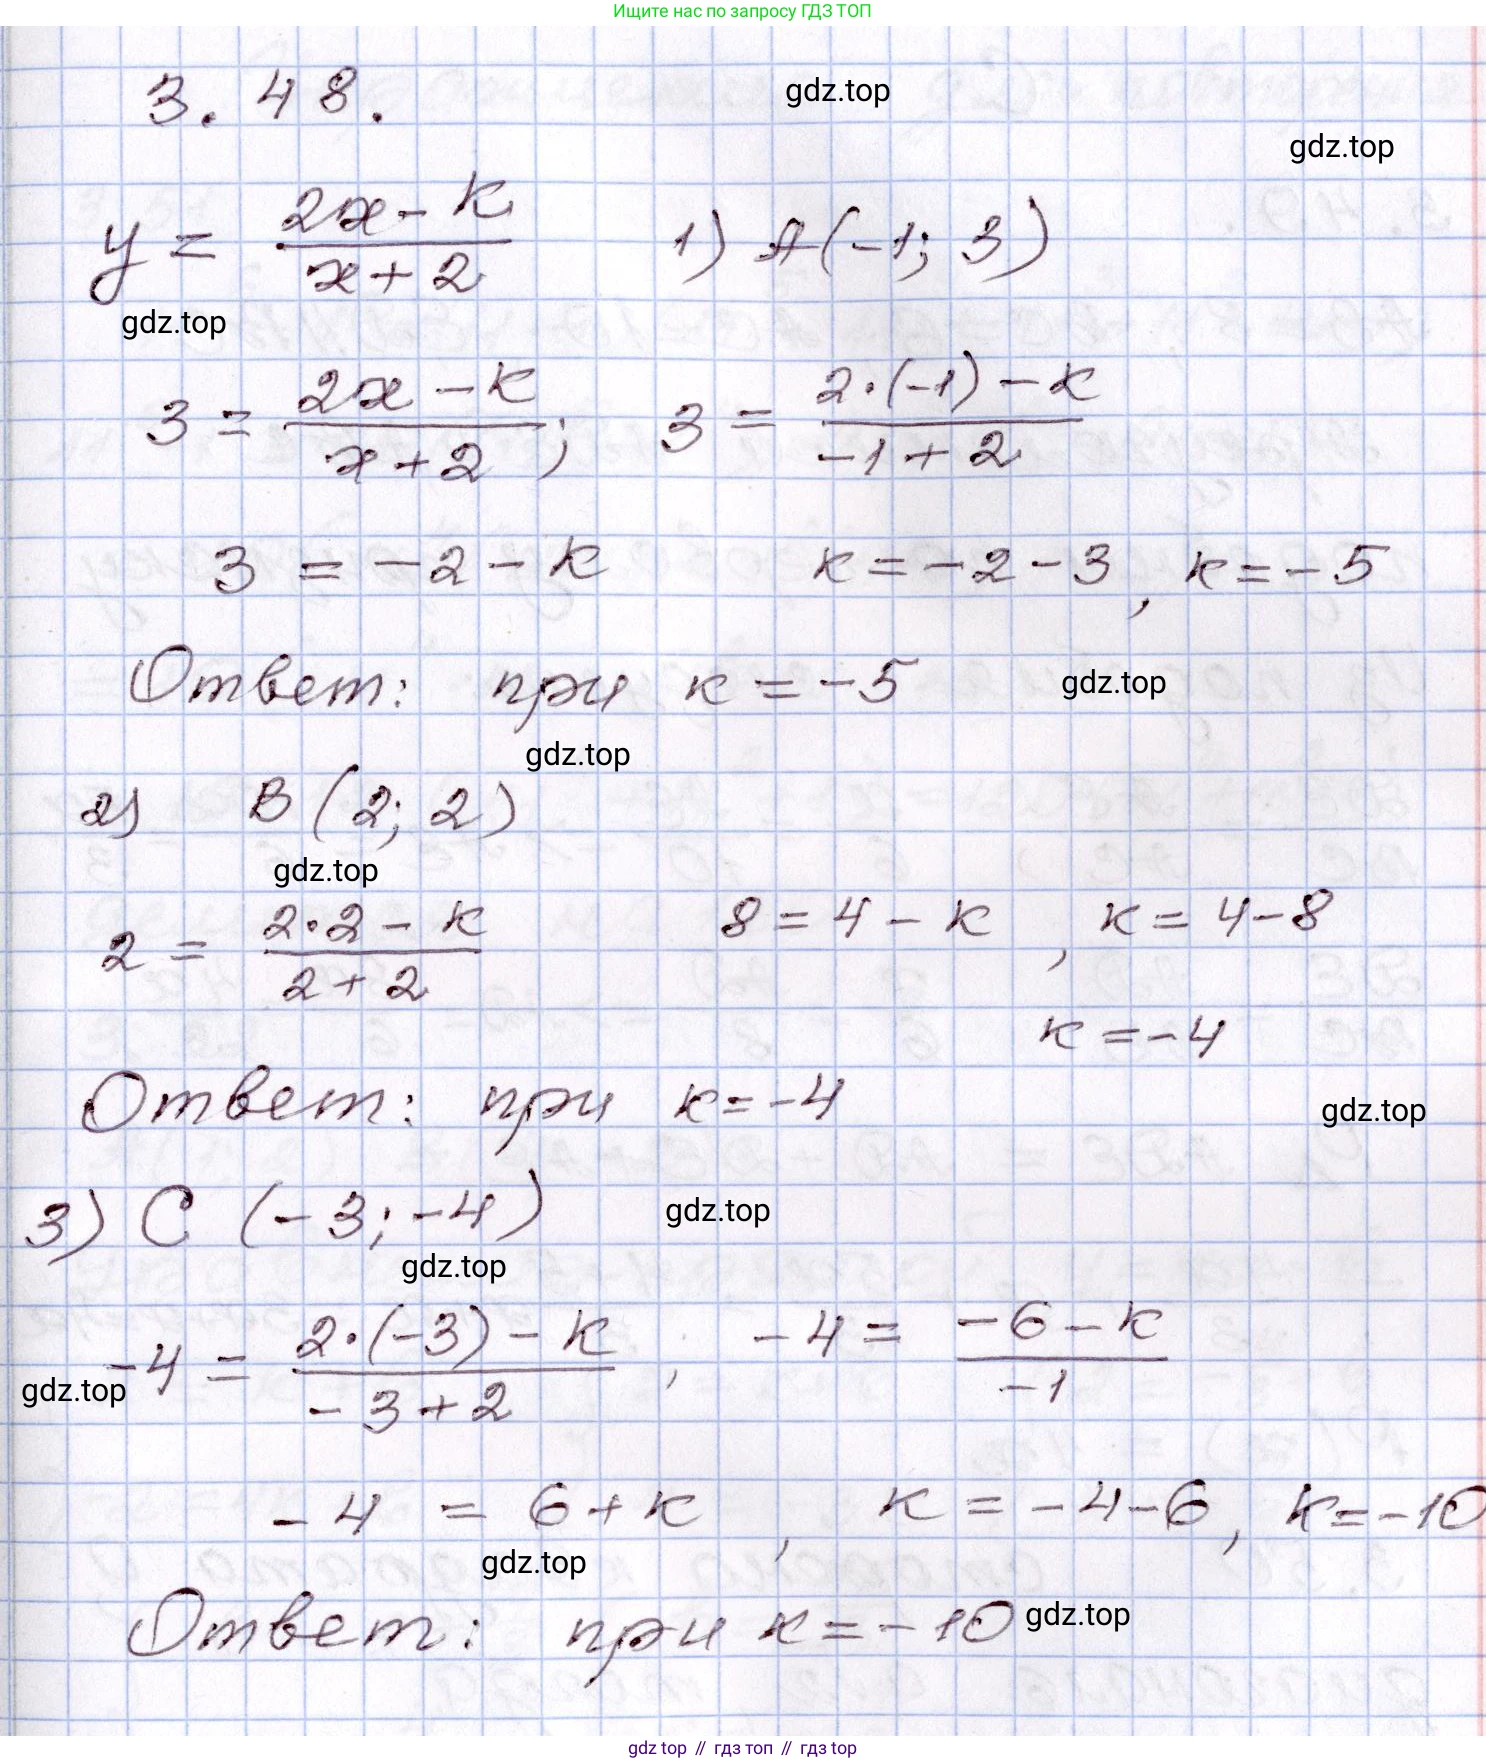 Ищите нас по запросу ГДЗ ТОП
3.48.
gdz.top
gdz.top
y = (2x - k)/(x + 2) 1) A(-1; 3)
gdz.top
3 = (2x - k)/(x + 2); 3 = (2·(-1) - k)/(-1 + 2)
3 = -2 - k k = -2 - 3, k = -5
Ответ: при k = -5 gdz.top
gdz.top
2) B(2; 2)
gdz.top
2 = (2·2 - k)/(2 + 2) 8 = 4 - k, k = 4 - 8
k = -4
Ответ: при k = -4 gdz.top
3) C (-3; -4) gdz.top
gdz.top
-4 = (2·(-3) - k)/(-3 + 2), -4 = (-6 - k)/(-1)
gdz.top
-4 = 6 + k, k = -4 - 6, k = -10
gdz.top
Ответ: при k = -10 gdz.top
gdz top // гдз топ // гдз top